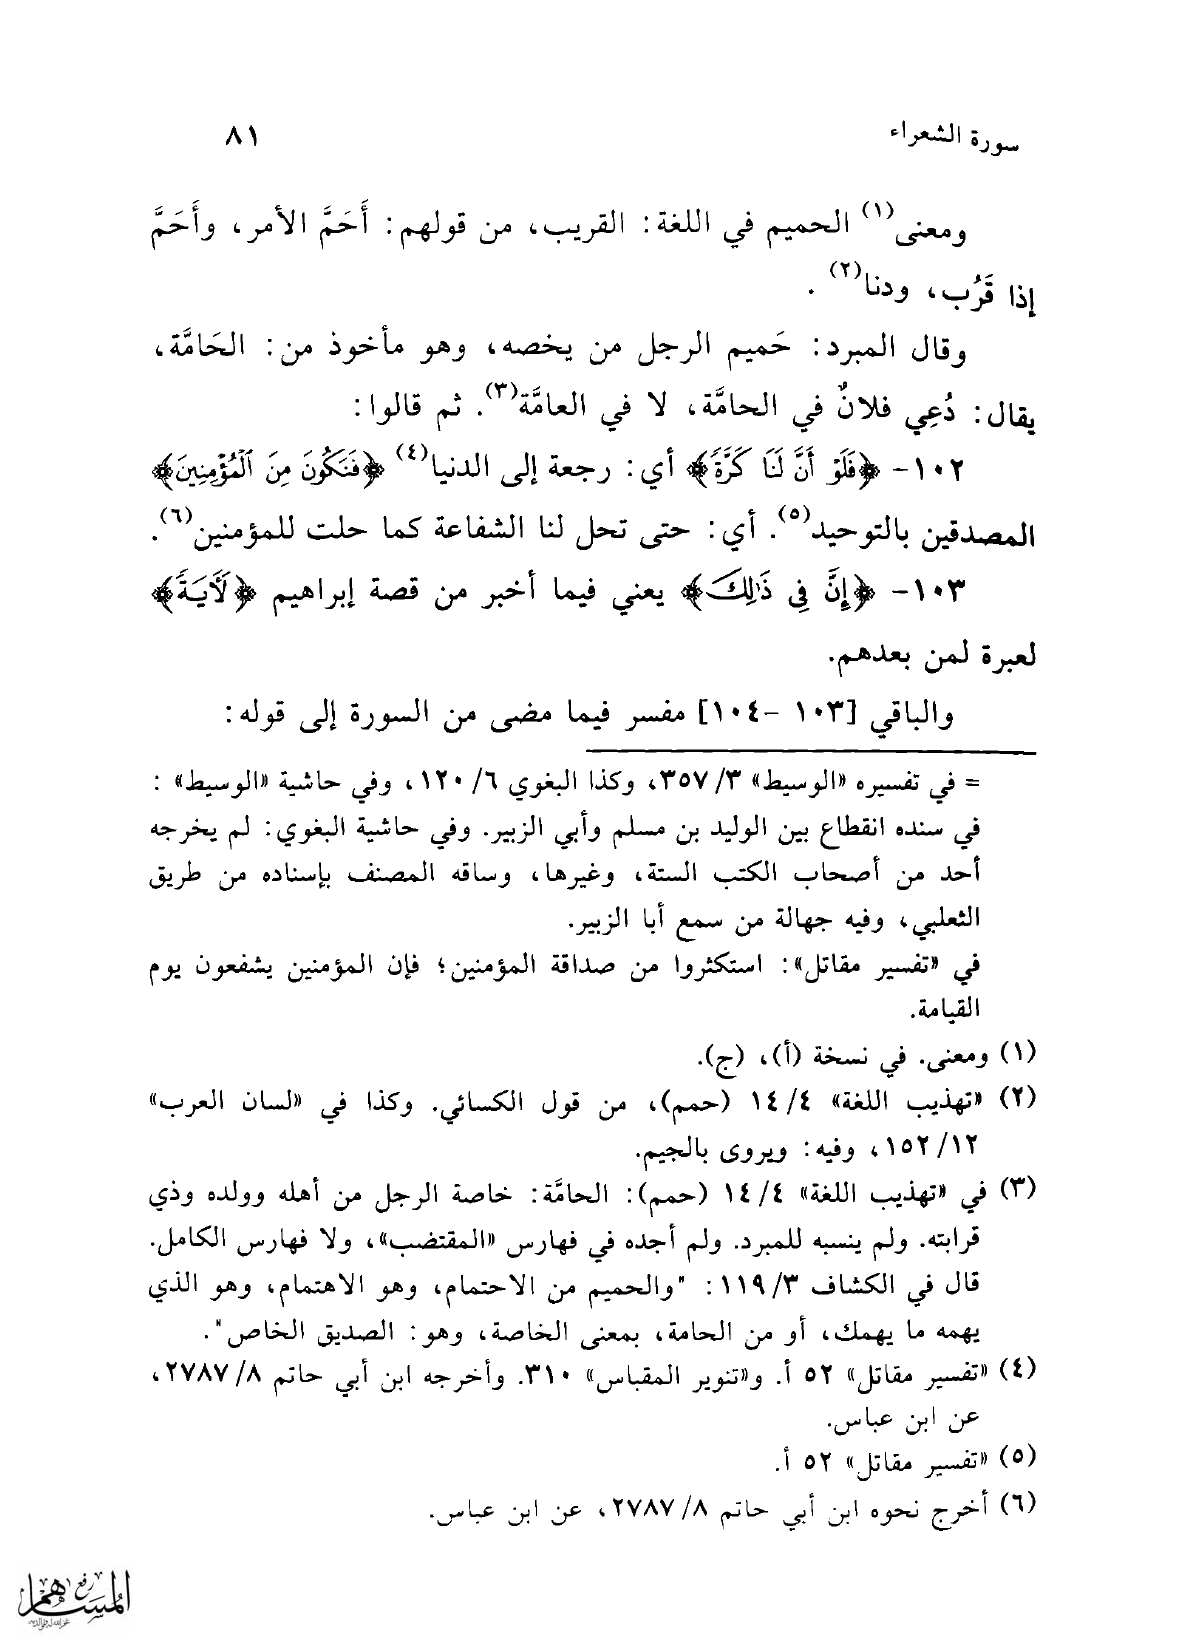 سورة الشعراء
٨١
ومعنى(١) الحميم في اللغة: القريب، من قولهم: أَحَمَّ الأمر، وأَحَمَّ
إذا قَرُب، ودنا(٢).
وقال المبرد: حَميم الرجل من يخصه، وهو مأخوذ من: الحَامَّة،
يقال: دُعِي فلانٌ في الحامَّة، لا في العامَّة(٣). ثم قالوا:
١٠٢- ﴿فَلَوْ أَنَّ لَنَا كَرَّةً﴾ أي: رجعة إلى الدنيا(٤) ﴿فَنَكُونَ مِنَ ٱلْمُؤْمِنِينَ﴾
المصدقين بالتوحيد(٥). أي: حتى تحل لنا الشفاعة كما حلت للمؤمنين(٦).
١٠٣- ﴿إِنَّ فِي ذَٰلِكَ﴾ يعني فيما أخبر من قصة إبراهيم ﴿لَآيَةً﴾
لعبرة لمن بعدهم.
والباقي [١٠٣ -١٠٤] مفسر فيما مضى من السورة إلى قوله:
= في تفسيره «الوسيط» ٣/ ٣٥٧، وكذا البغوي ٦/ ١٢٠، وفي حاشية «الوسيط» :
في سنده انقطاع بين الوليد بن مسلم وأبي الزبير. وفي حاشية البغوي: لم يخرجه
أحد من أصحاب الكتب الستة، وغيرها، وساقه المصنف بإسناده من طريق
الثعلبي، وفيه جهالة من سمع أبا الزبير.
في «تفسير مقاتل»: استكثروا من صداقة المؤمنين؛ فإن المؤمنين يشفعون يوم
القيامة.
(١) ومعنى. في نسخة (أ)، (ج).
(٢) «تهذيب اللغة» ٤/ ١٤ (حمم)، من قول الكسائي. وكذا في «لسان العرب»
١٢/ ١٥٢، وفيه: ويروى بالجيم.
(٣) في «تهذيب اللغة» ٤/ ١٤ (حمم): الحامَّة: خاصة الرجل من أهله وولده وذي
قرابته. ولم ينسبه للمبرد. ولم أجده في فهارس «المقتضب»، ولا فهارس الكامل.
قال في الكشاف ٣/ ١١٩: "والحميم من الاحتمام، وهو الاهتمام، وهو الذي
يهمه ما يهمك، أو من الحامة، بمعنى الخاصة، وهو: الصديق الخاص".
(٤) «تفسير مقاتل» ٥٢ أ. و«تنوير المقباس» ٣١٠. وأخرجه ابن أبي حاتم ٨/ ٢٧٨٧،
عن ابن عباس.
(٥) «تفسير مقاتل» ٥٢ أ.
(٦) أخرج نحوه ابن أبي حاتم ٨/ ٢٧٨٧، عن ابن عباس.
رفع
المساهم